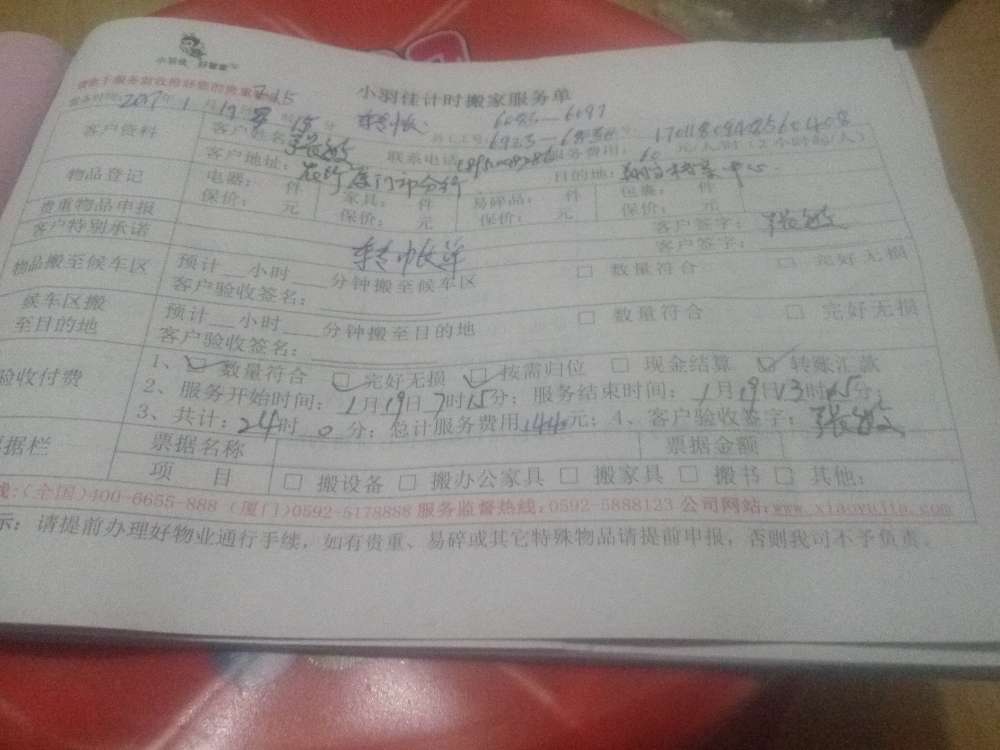 小羽佳 好管家
小羽佳计时搬家服务单
2017年1月19
6085—6097
客户资料 客户姓名: 张敏 员工工号: 6923— 1701180948560408
客户地址: 农行厦门市分行 联系电话 服务费用: 60 元/人/时(2小时起/人)
目的地: 中心
物品登记 电器: 件 家具: 件 易碎品: 件 包裹: 件
贵重物品申报 保价: 元 保价: 元 保价: 元 保价: 元
客户特别承诺 转帐单 客户签字: 张敏
客户签字:
物品搬至候车区 预计__小时___分钟搬至候车区 □ 数量符合 □ 完好无损
客户验收签名:
候车区搬至目的地 预计__小时___分钟搬至目的地 □ 数量符合 □ 完好无损
客户验收签名:
验收付费 1、☑ 数量符合 ☑ 完好无损 ☑ 按需归位 □ 现金结算 ☑ 转账汇款
2、服务开始时间: 1月19日7时15分; 服务结束时间: 1月19日13时15分;
3、共计: 24时0分; 总计服务费用1440元; 4、客户验收签字: 张敏
票据栏 票据名称 票据金额
项 目 □ 搬设备 □ 搬办公家具 □ 搬家具 □ 搬书 □ 其他:
线:(全国)400-6655-888 (厦门)0592-5178888 服务监督热线:0592-5888123 公司网站:www.xiaoyujia.com
示: 请提前办理好物业通行手续, 如有贵重、易碎或其它特殊物品请提前申报, 否则我司不予负责。